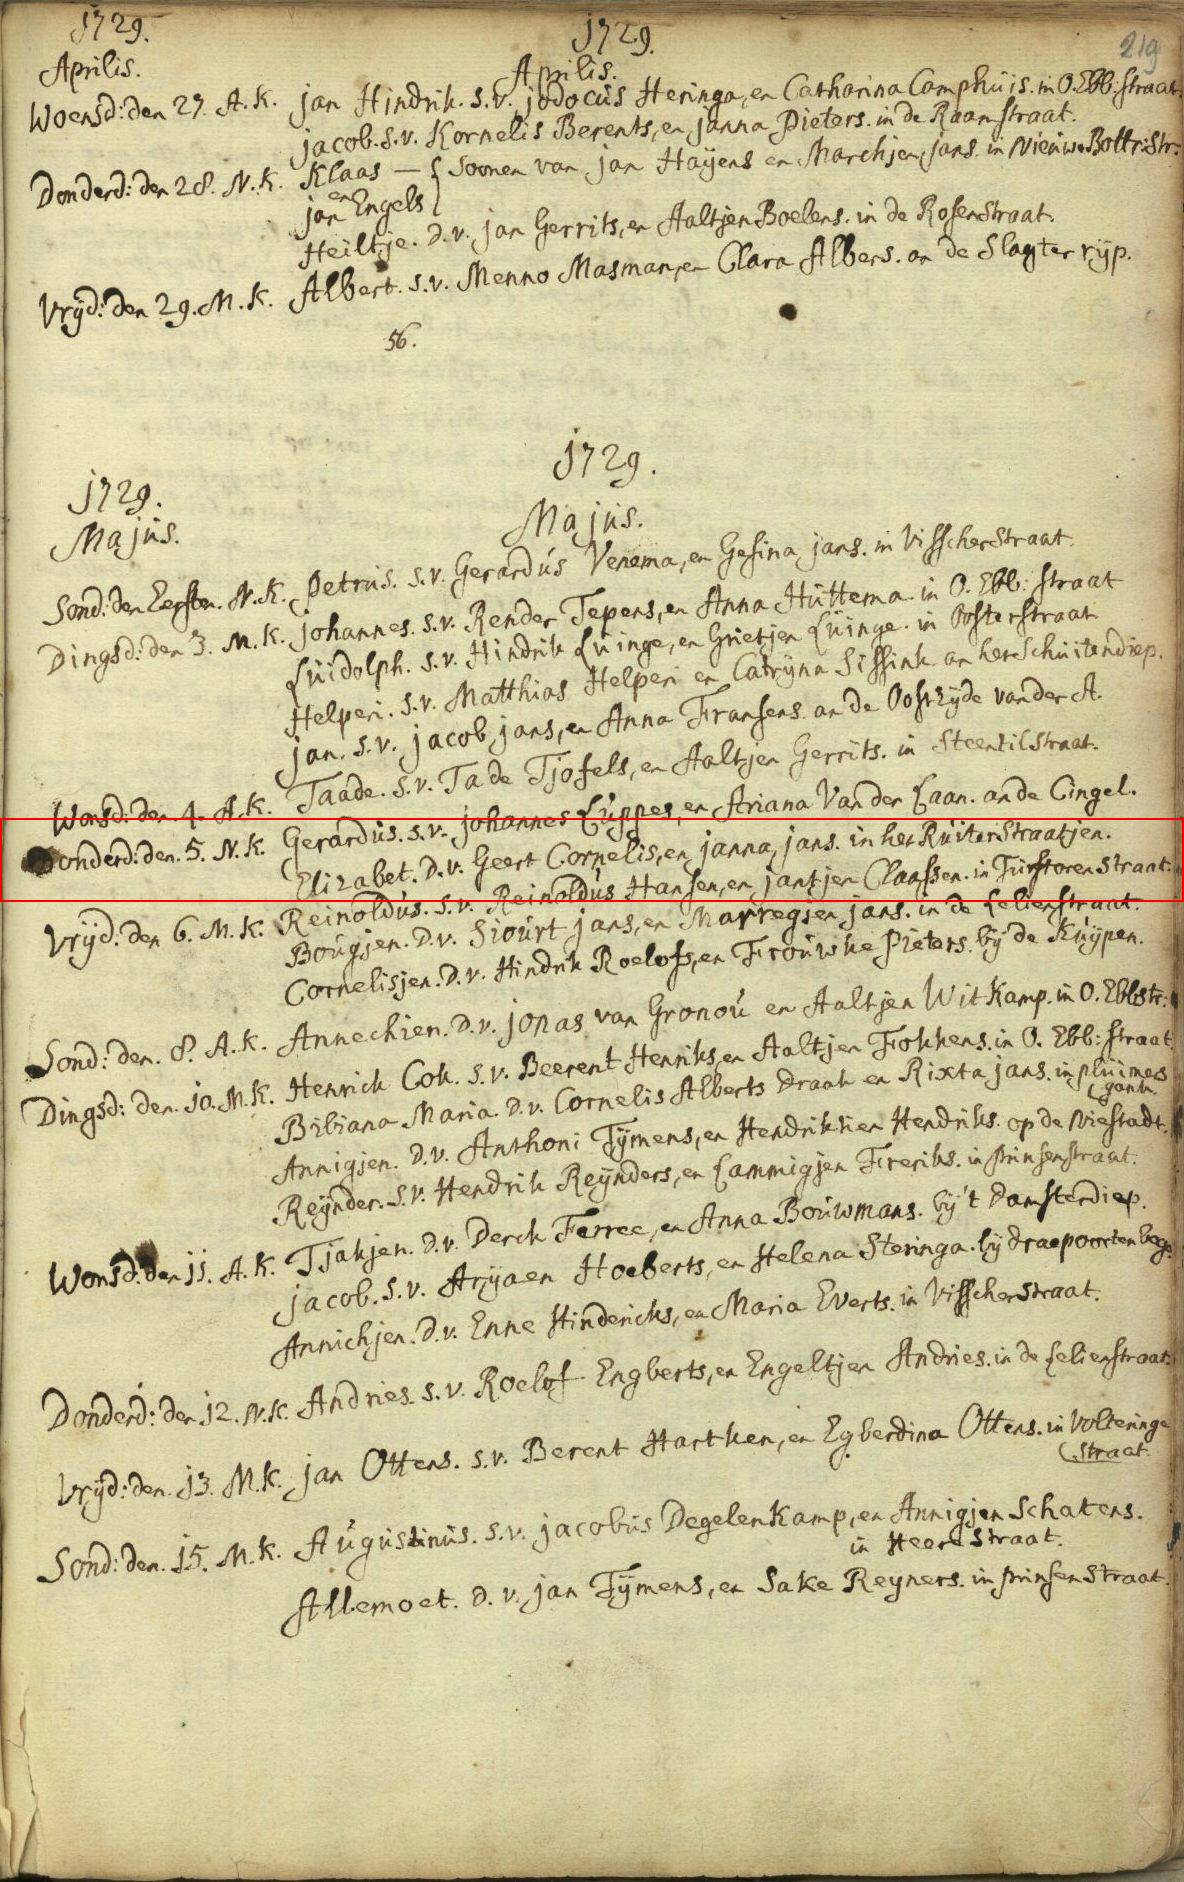 1729.
Aprilis.
1729.
Aprilis.
219
Woensd: den 27. A. K. Jan Hindrik. s. v. Jodocus Heringa, en Catharina Camphuis. in O. Ebb: straat
Jacob. s. v. Kornelis Berents, en Janna Pieters. in de Raamstraat.
Donderd: den 28. N. K. Klaas — { Soonen van Jan Hayens en Marchjen Jans. in Nieuwe Botter: Str:
en
Jan Engels
Heiltje. D. v. Jan Gerrits, en Aaltjen Boelens. in de Rosenstraat.
Vrijd: den 29. M. K. Albert. s. v. Menno Masman, en Clara Albers. an de Slagter rijp.
56.
1729.
1729.
Majus.
Majus.
Sond: den Eersten. N. K. Petrus. s. v. Gerardus Venema, en Gesina Jans. in Visscherstraat.
Dingsd: den 3. M. K. Johannes. s. v. Render Tepens, en Anna Huttema. in O. Ebb: straat
Luidolph. s. v. Hindrik Luinge, en Grietjen Luinge. in Oosterstraat
Helperi. s. v. Matthias Helperi en Catryna Sissink an het Schuitendiep.
Jan. s. v. Jacob Jans, en Anna Fransens. an de Oostzyde van der A.
Wonsd: den 4. A. K. Taade. s. v. Tade Tjofels, en Aaltjen Gerrits. in Steentilstraat.
Donderd: den. 5. N. K. Gerardus. s. v. Johannes Luppes, en Ariana Van der Laan. an de Cingel.
Elizabet. D. v. Geert Cornelis, en Janna Jans. in het Ruiterstraatjen.
Vrijd: den 6. M. K. Reinoldus. s. v. Reinoldus Hansen, en Jantjen Claassen. in Turftorenstraat.
Bougjen. D. v. Siourt Jans, en Marregien Jans. in de Lelienstraat.
Cornelisjen. D. v. Hindrik Roelofs, en Frouwke Pieters. by de Kuypen.
Sond: den. 8. A. K. Annechien. D. v. Jonas van Gronou en Aaltjen Witkamp. in O. Ebbstr:
Dingsd: den. 10. M. K. Henrick Cok. s. v. Beerent Henriks, en Aaltjen Fokkens. in O. Ebb: straat
Bibiana Maria. D. v. Cornelis Alberts Draak en Rixta Jans. in pluimers
gank.
Annigjen. D. v. Anthoni Tymens, en Hendriktien Hendriks. op de Niestadt.
Reynder. s. v. Hendrik Reynders, en Lammigjen Freriks. in prinsenstraat.
Wonsd: den 11. A. K. Tjakjen. D. v. Derck Ferree, en Anna Bouwmans. by 't Damsterdiep.
Jacob. s. v. Aryaen Hoeberts, en Helena Steringa. by draepoorten boge
Annichjen. D. v. Enne Hindericks, en Maria Everts. in Visscherstraat.
Donderd: den 12. N. K. Andries. s. v. Roelof Engberts, en Engeltjen Andries. in de Lelienstraat
Vrijd: den. 13. M. K. Jan Ottens. s. v. Berent Hartken, en Egberdina Ottens. in Volteringe
straat.
Sond: den. 15. M. K. Augustinus. s. v. Jacobus Degelenkamp, en Annigjen Schatens.
in Heerestraat.
Allemoet. D. v. Jan Tymens, en Sake Reyners. in prinsenstraat.